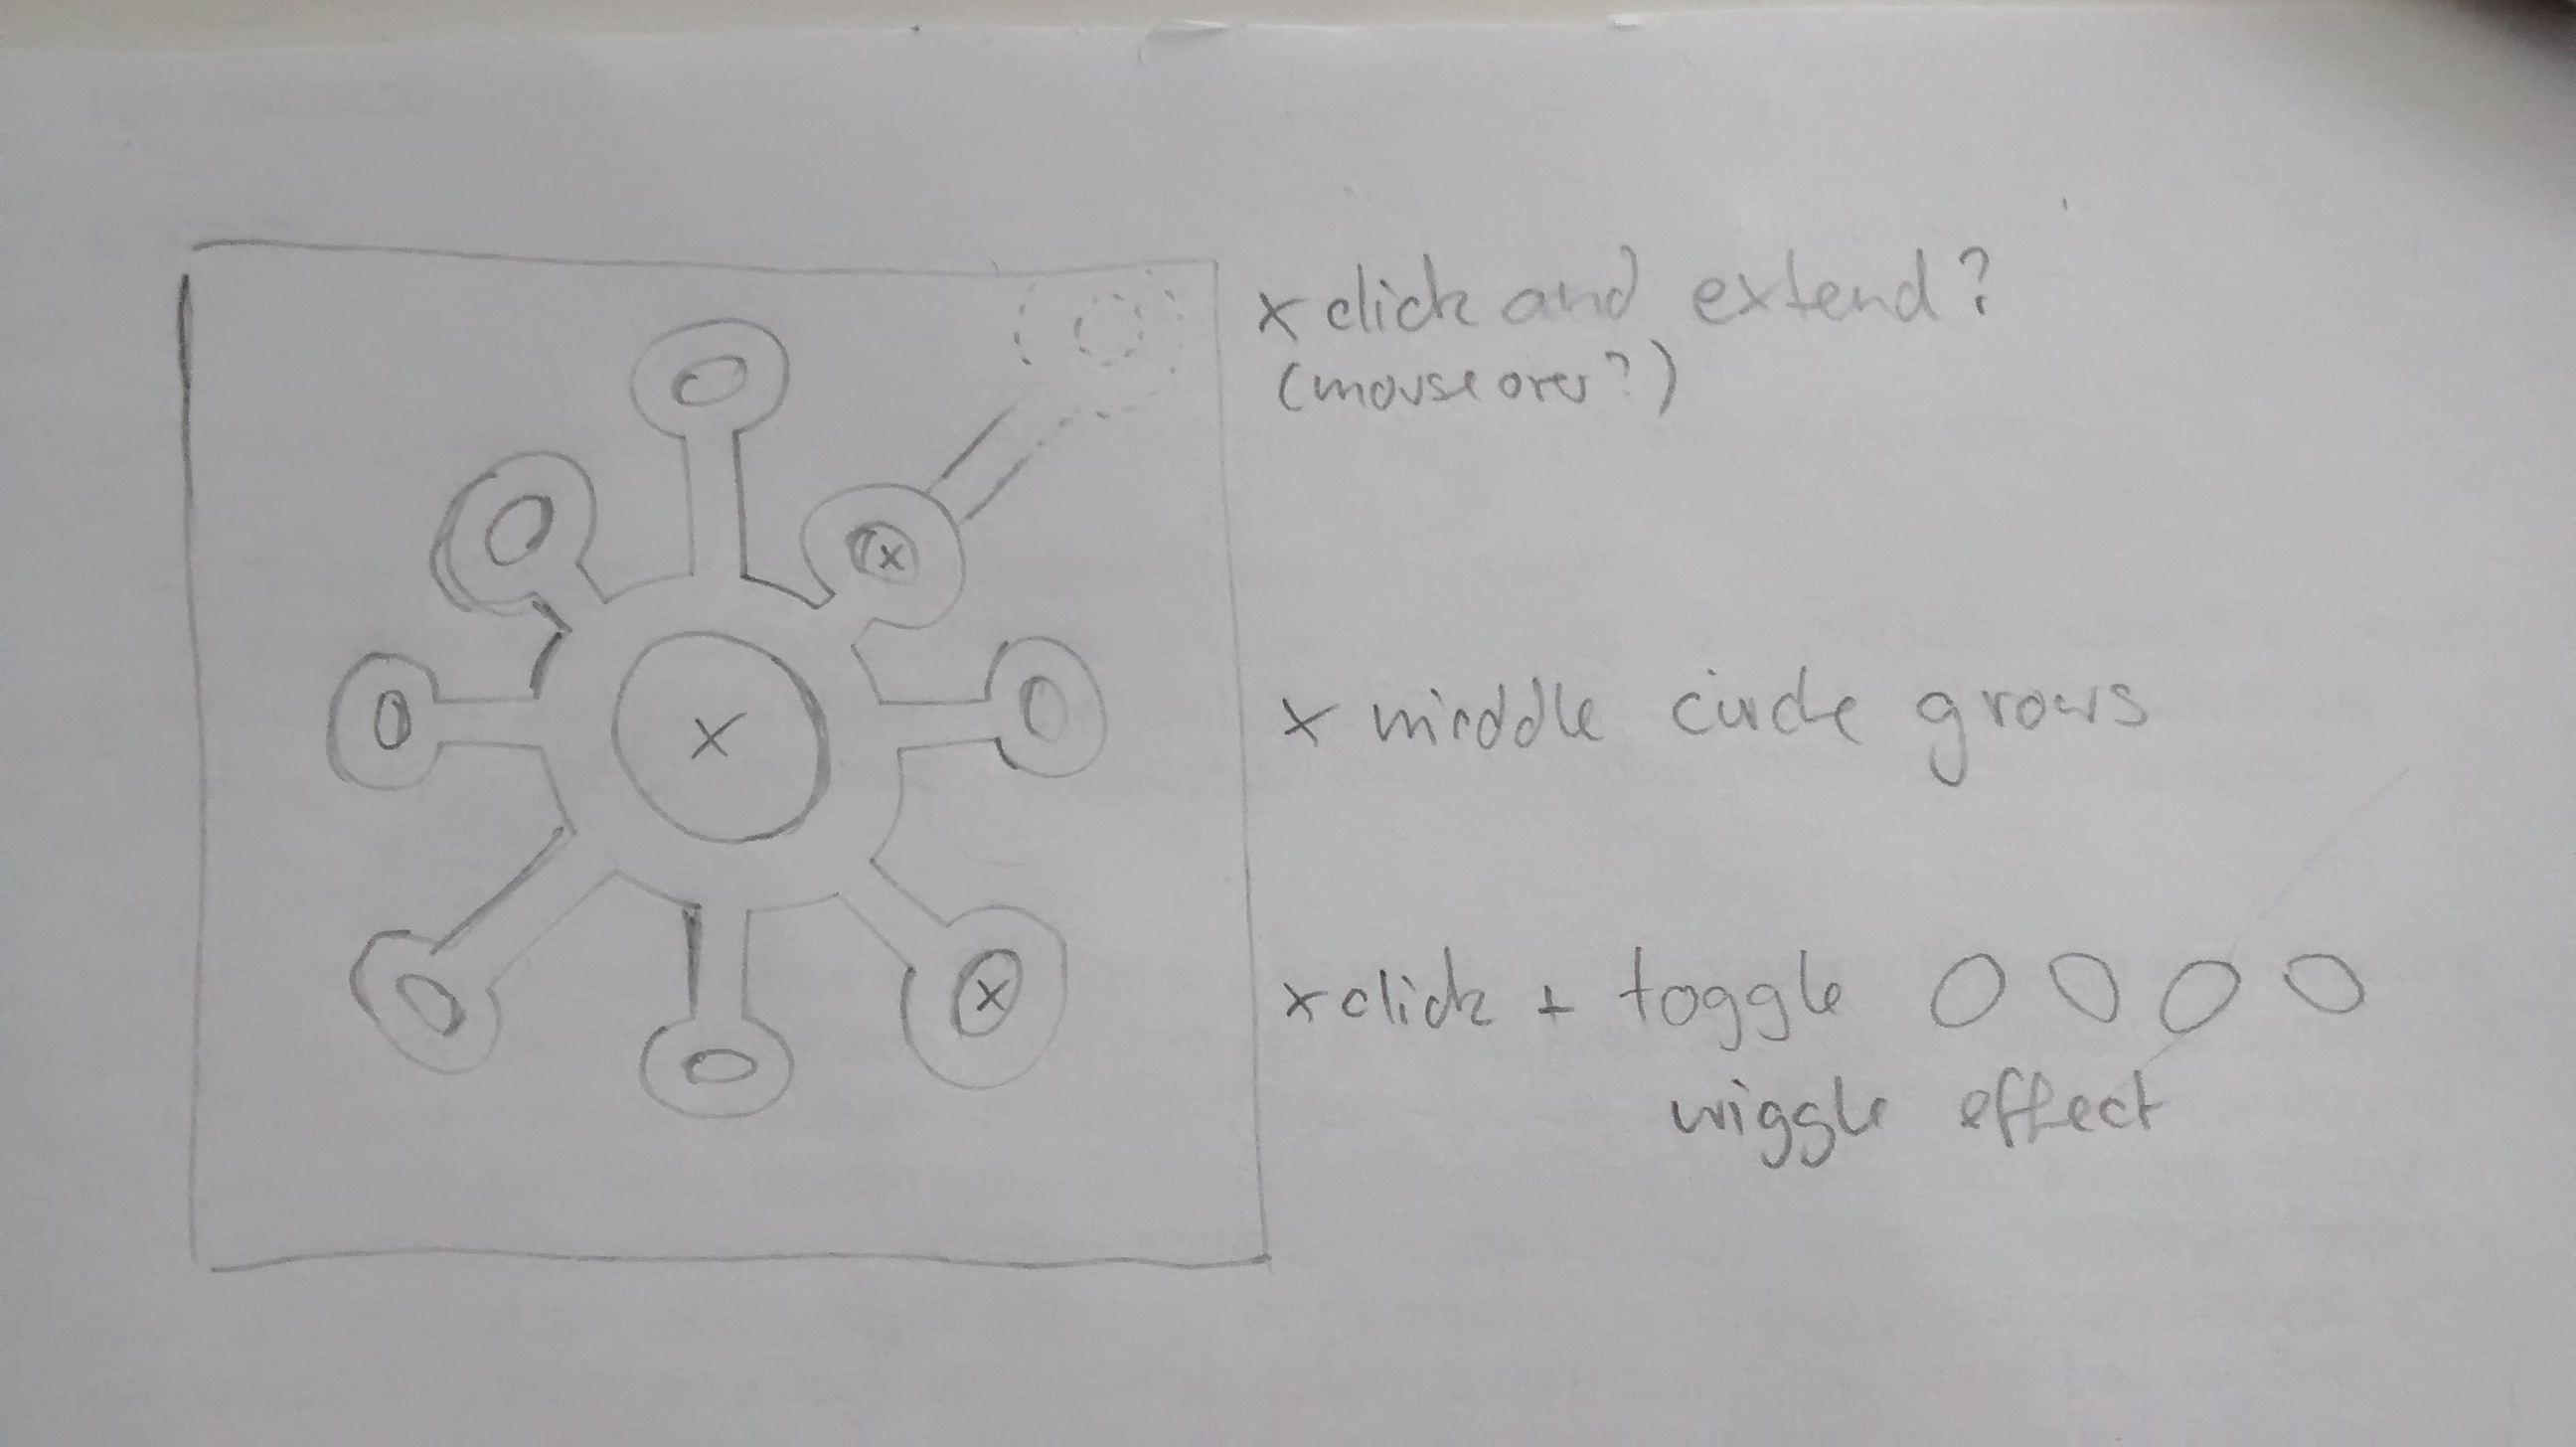 x click and extend?
(mouse over?)
x
x
x middle circle grows
x
x click + toggle
wiggle effect